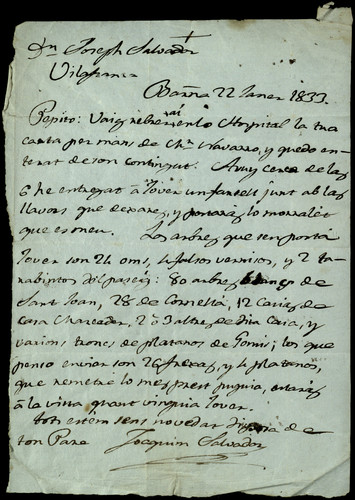 Dn Joseph Salvador
Vilafranca
Barna 22 Janer 1833.
Pepito: Vaig rebrer en lo Hospital la tua
carta per mans de Navarro, y quedo en-
terat de son contingut. Avuy cerca de las
6 he entregat á Jover un farsell junt ab las
llavors que dexares, y portará lo morralet
que es meu. Los arbres que sen portá
Jover son 24 oms, 4 falsos vernisos, y 2 ta-
rabintos del passeig: 80 arbres blancs de
Sant Joan, 28 de Cornellá, 12 de
casa 2 ó 3 altres de dita casa, y
varions troncs de platanos de Jomis; los que
penso enviar son 26 y 4 platanos,
que remetre lo mes prest puguia, estaré
á la vista quant vinguia Jover.
tots estem sens novedar de
ton Pare Joaquim Salvador